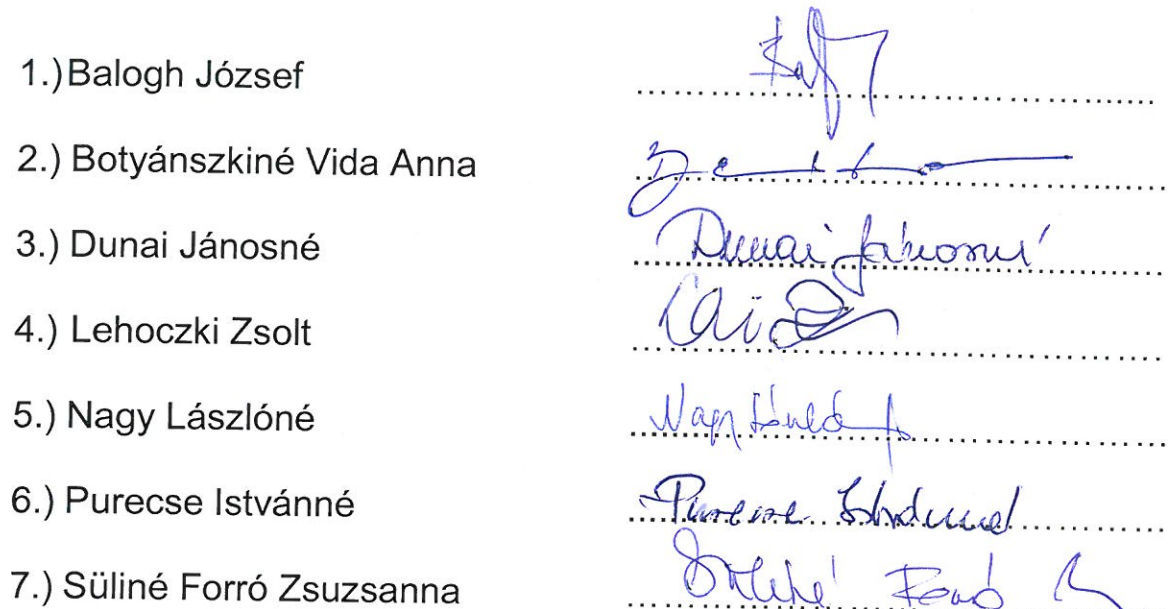 1.)Balogh József
2.) Botyánszkiné Vida Anna
3.) Dunai Jánosné Dunai Jánosné
4.) Lehoczki Zsolt
5.) Nagy Lászlóné Nagy
6.) Purecse Istvánné Purecse Istvánné
7.) Süliné Forró Zsuzsanna Süliné Forró